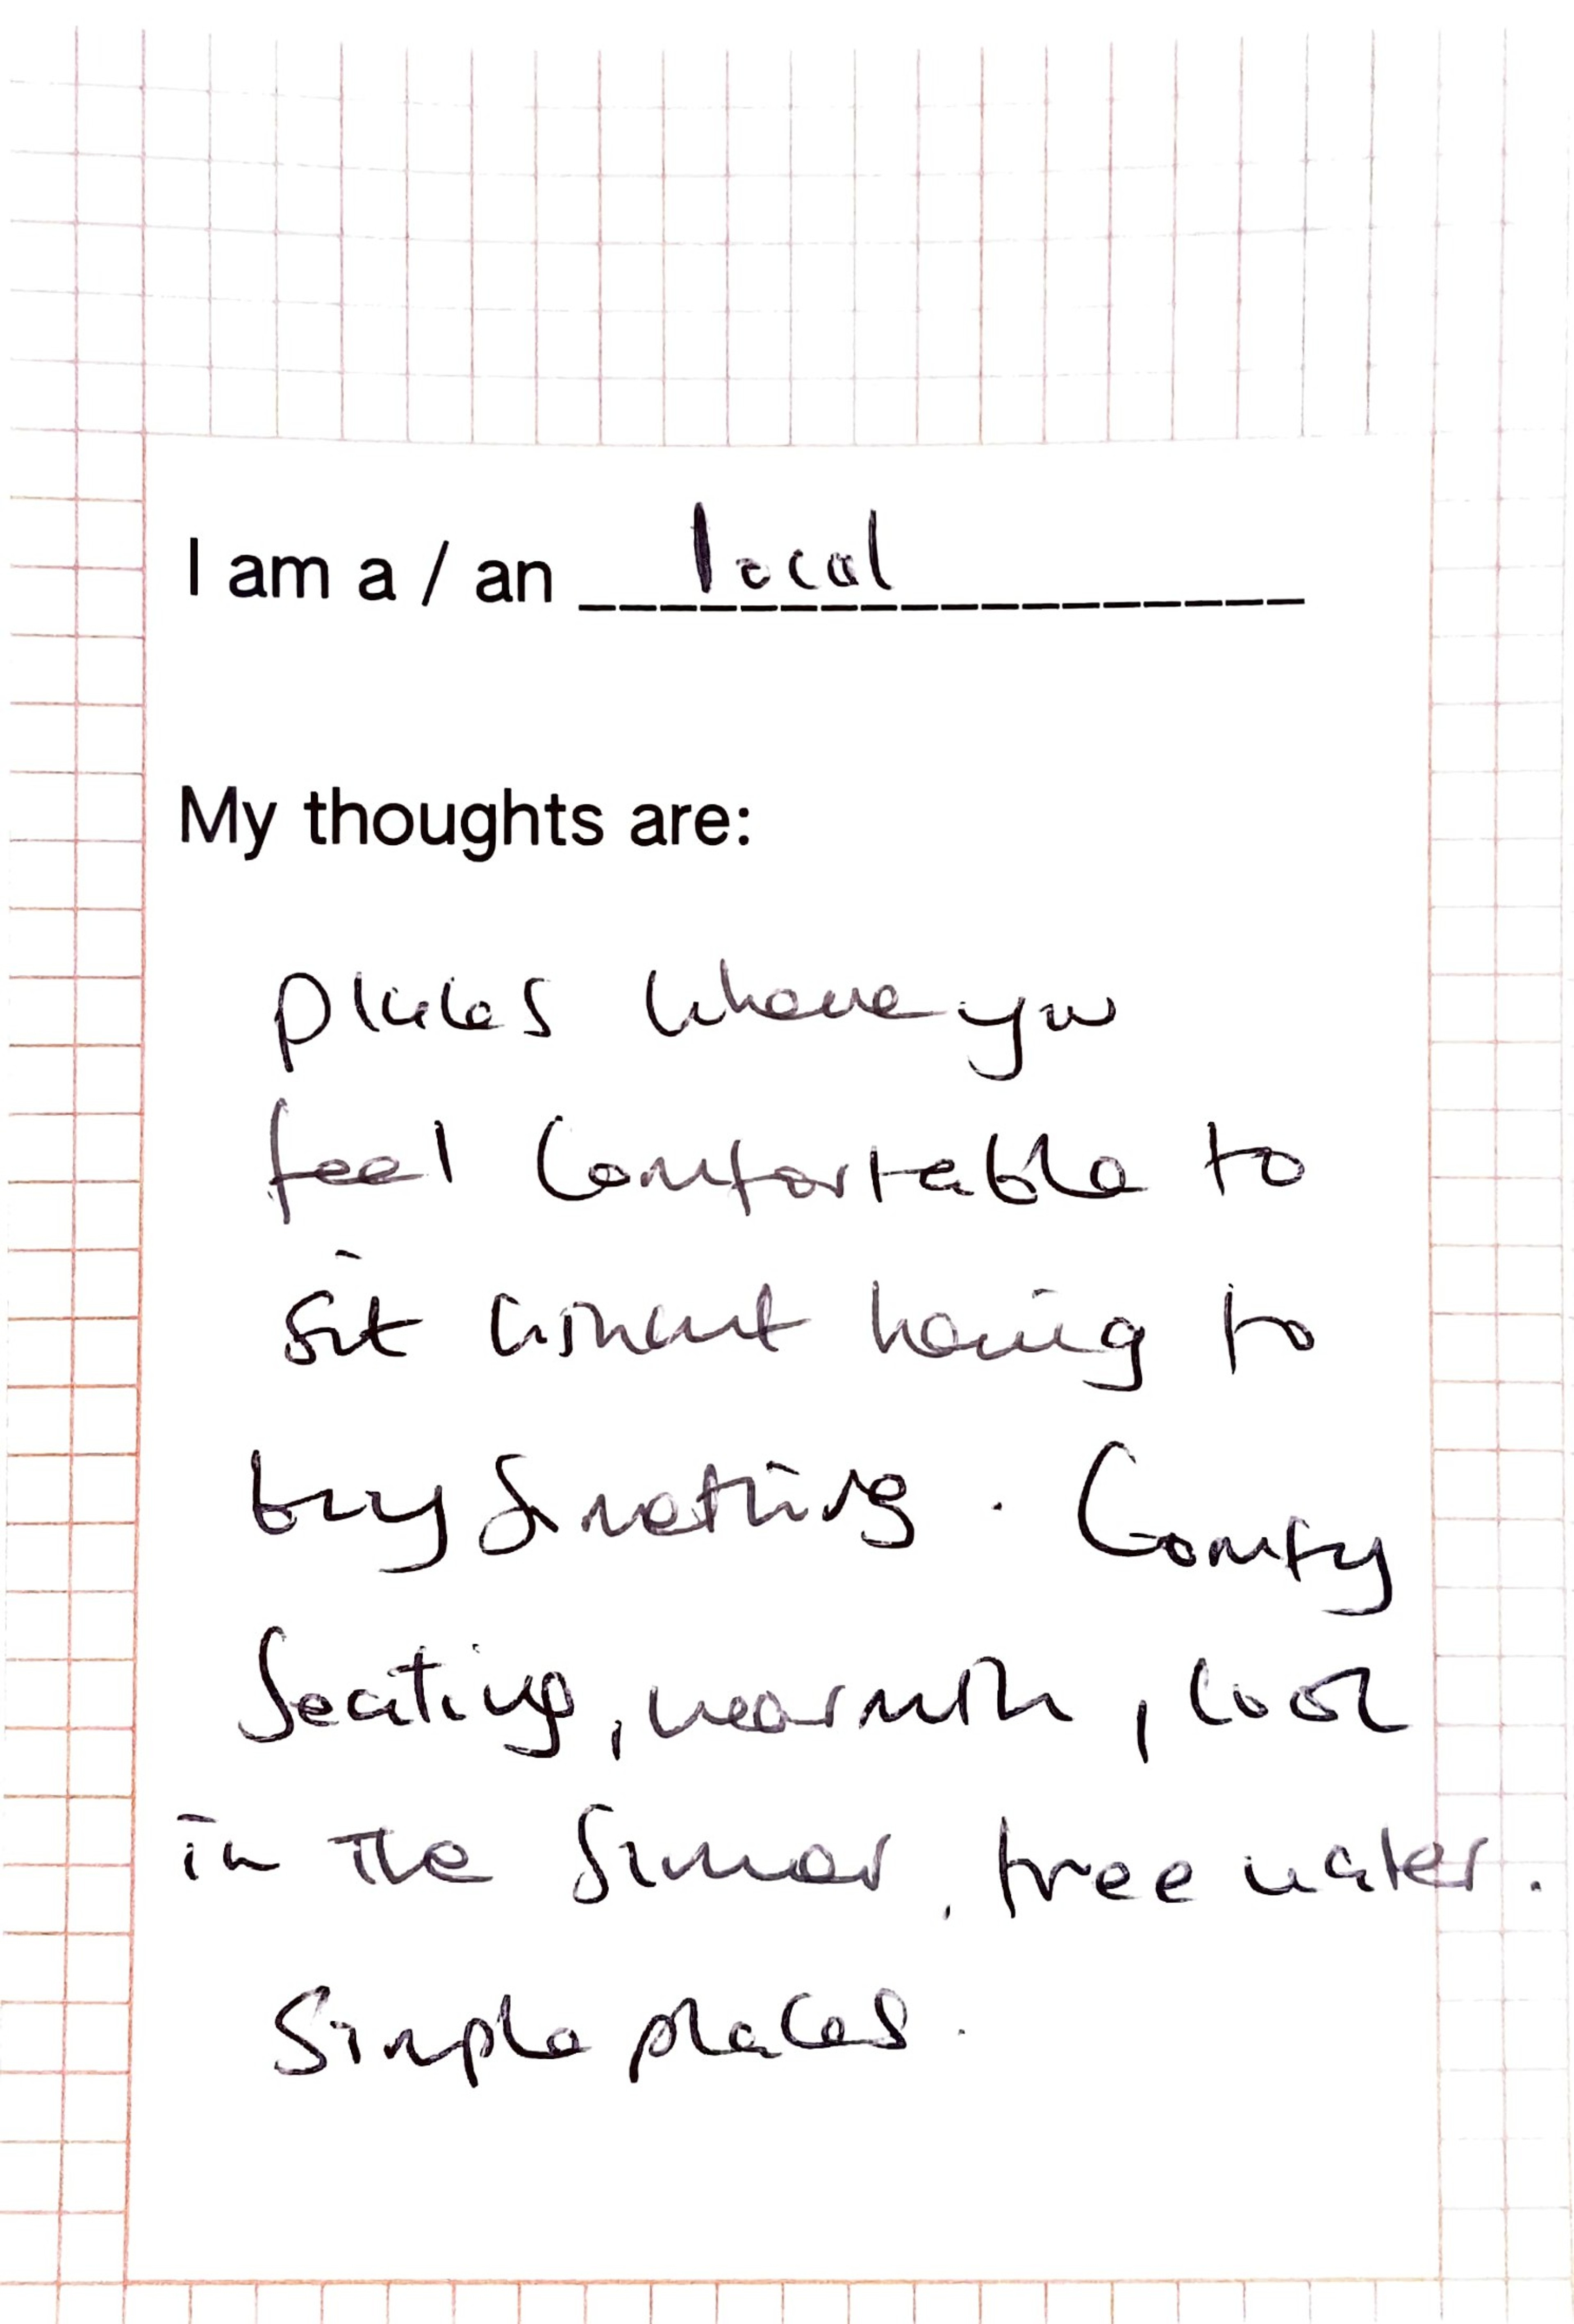 I am a / an local
My thoughts are:
places where you
feel comfortable to
sit without having to
buy something. Comfy
seating, warmth, cool
in the summer, free water.
Simple places.